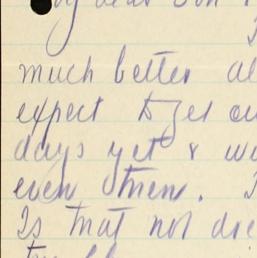 my dear Son
much better al
expect to get ou
days yet & wo
even then. I
Is that not dre